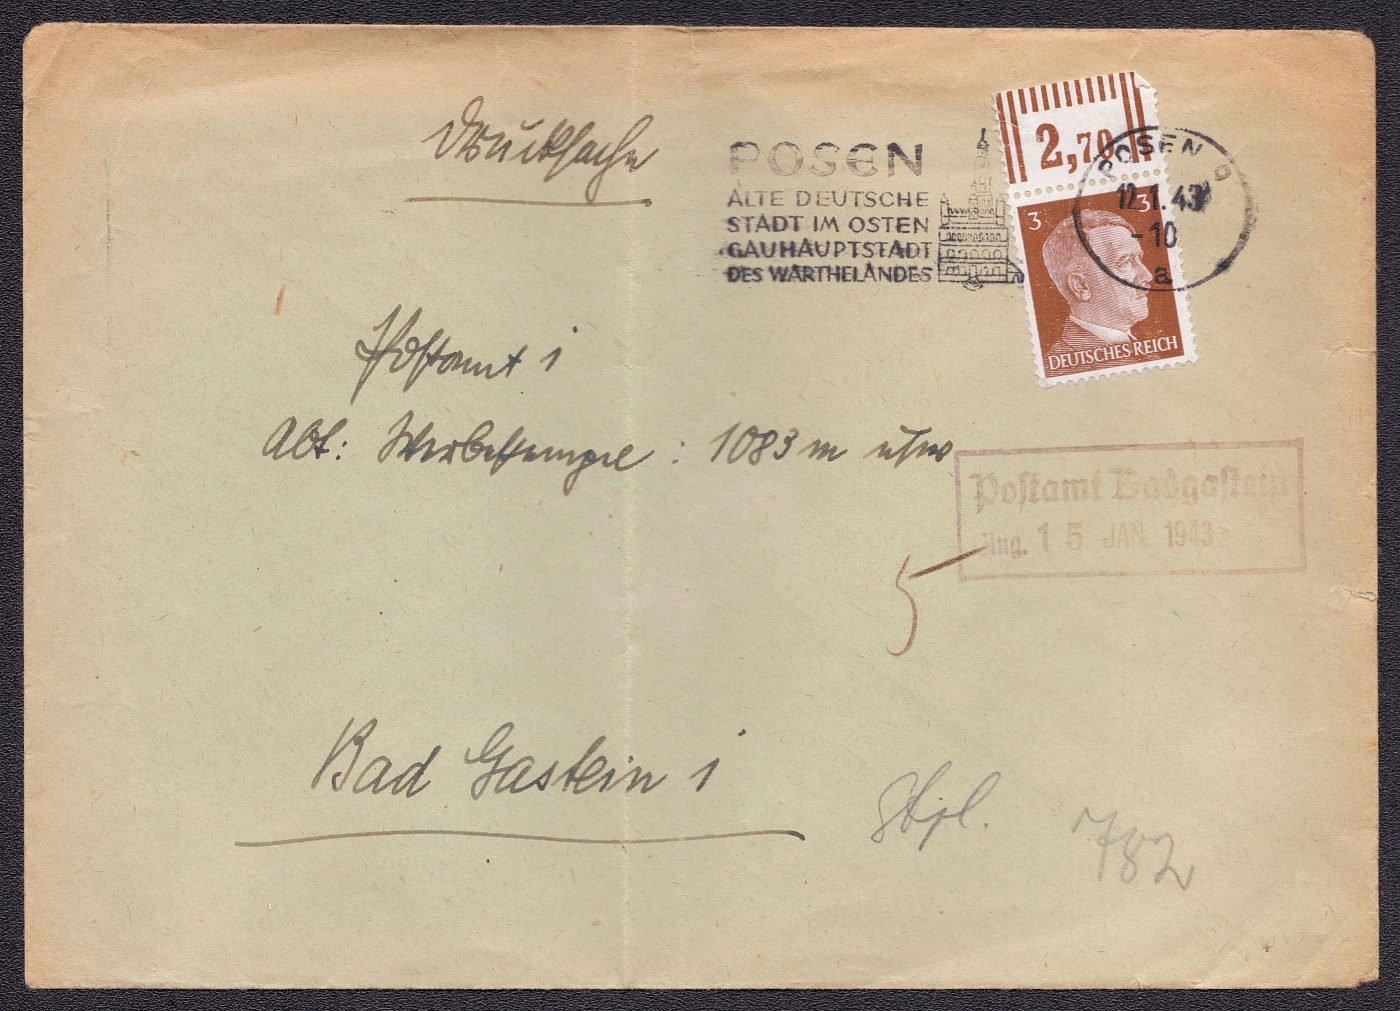 Drucksache
POSEN
ALTE DEUTSCHE
STADT IM OSTEN
GAUHAUPTSTADT
DES WARTHELANDES
2,70
POSEN 9
12.1.43
-10
a
3 3
DEUTSCHES REICH
Postamt 1
Abt: Werbestempel : 1083 m usw
Postamt Badgastein
Eing. 15 JAN. 1943
5
Bad Gastein 1
Stpl.
782